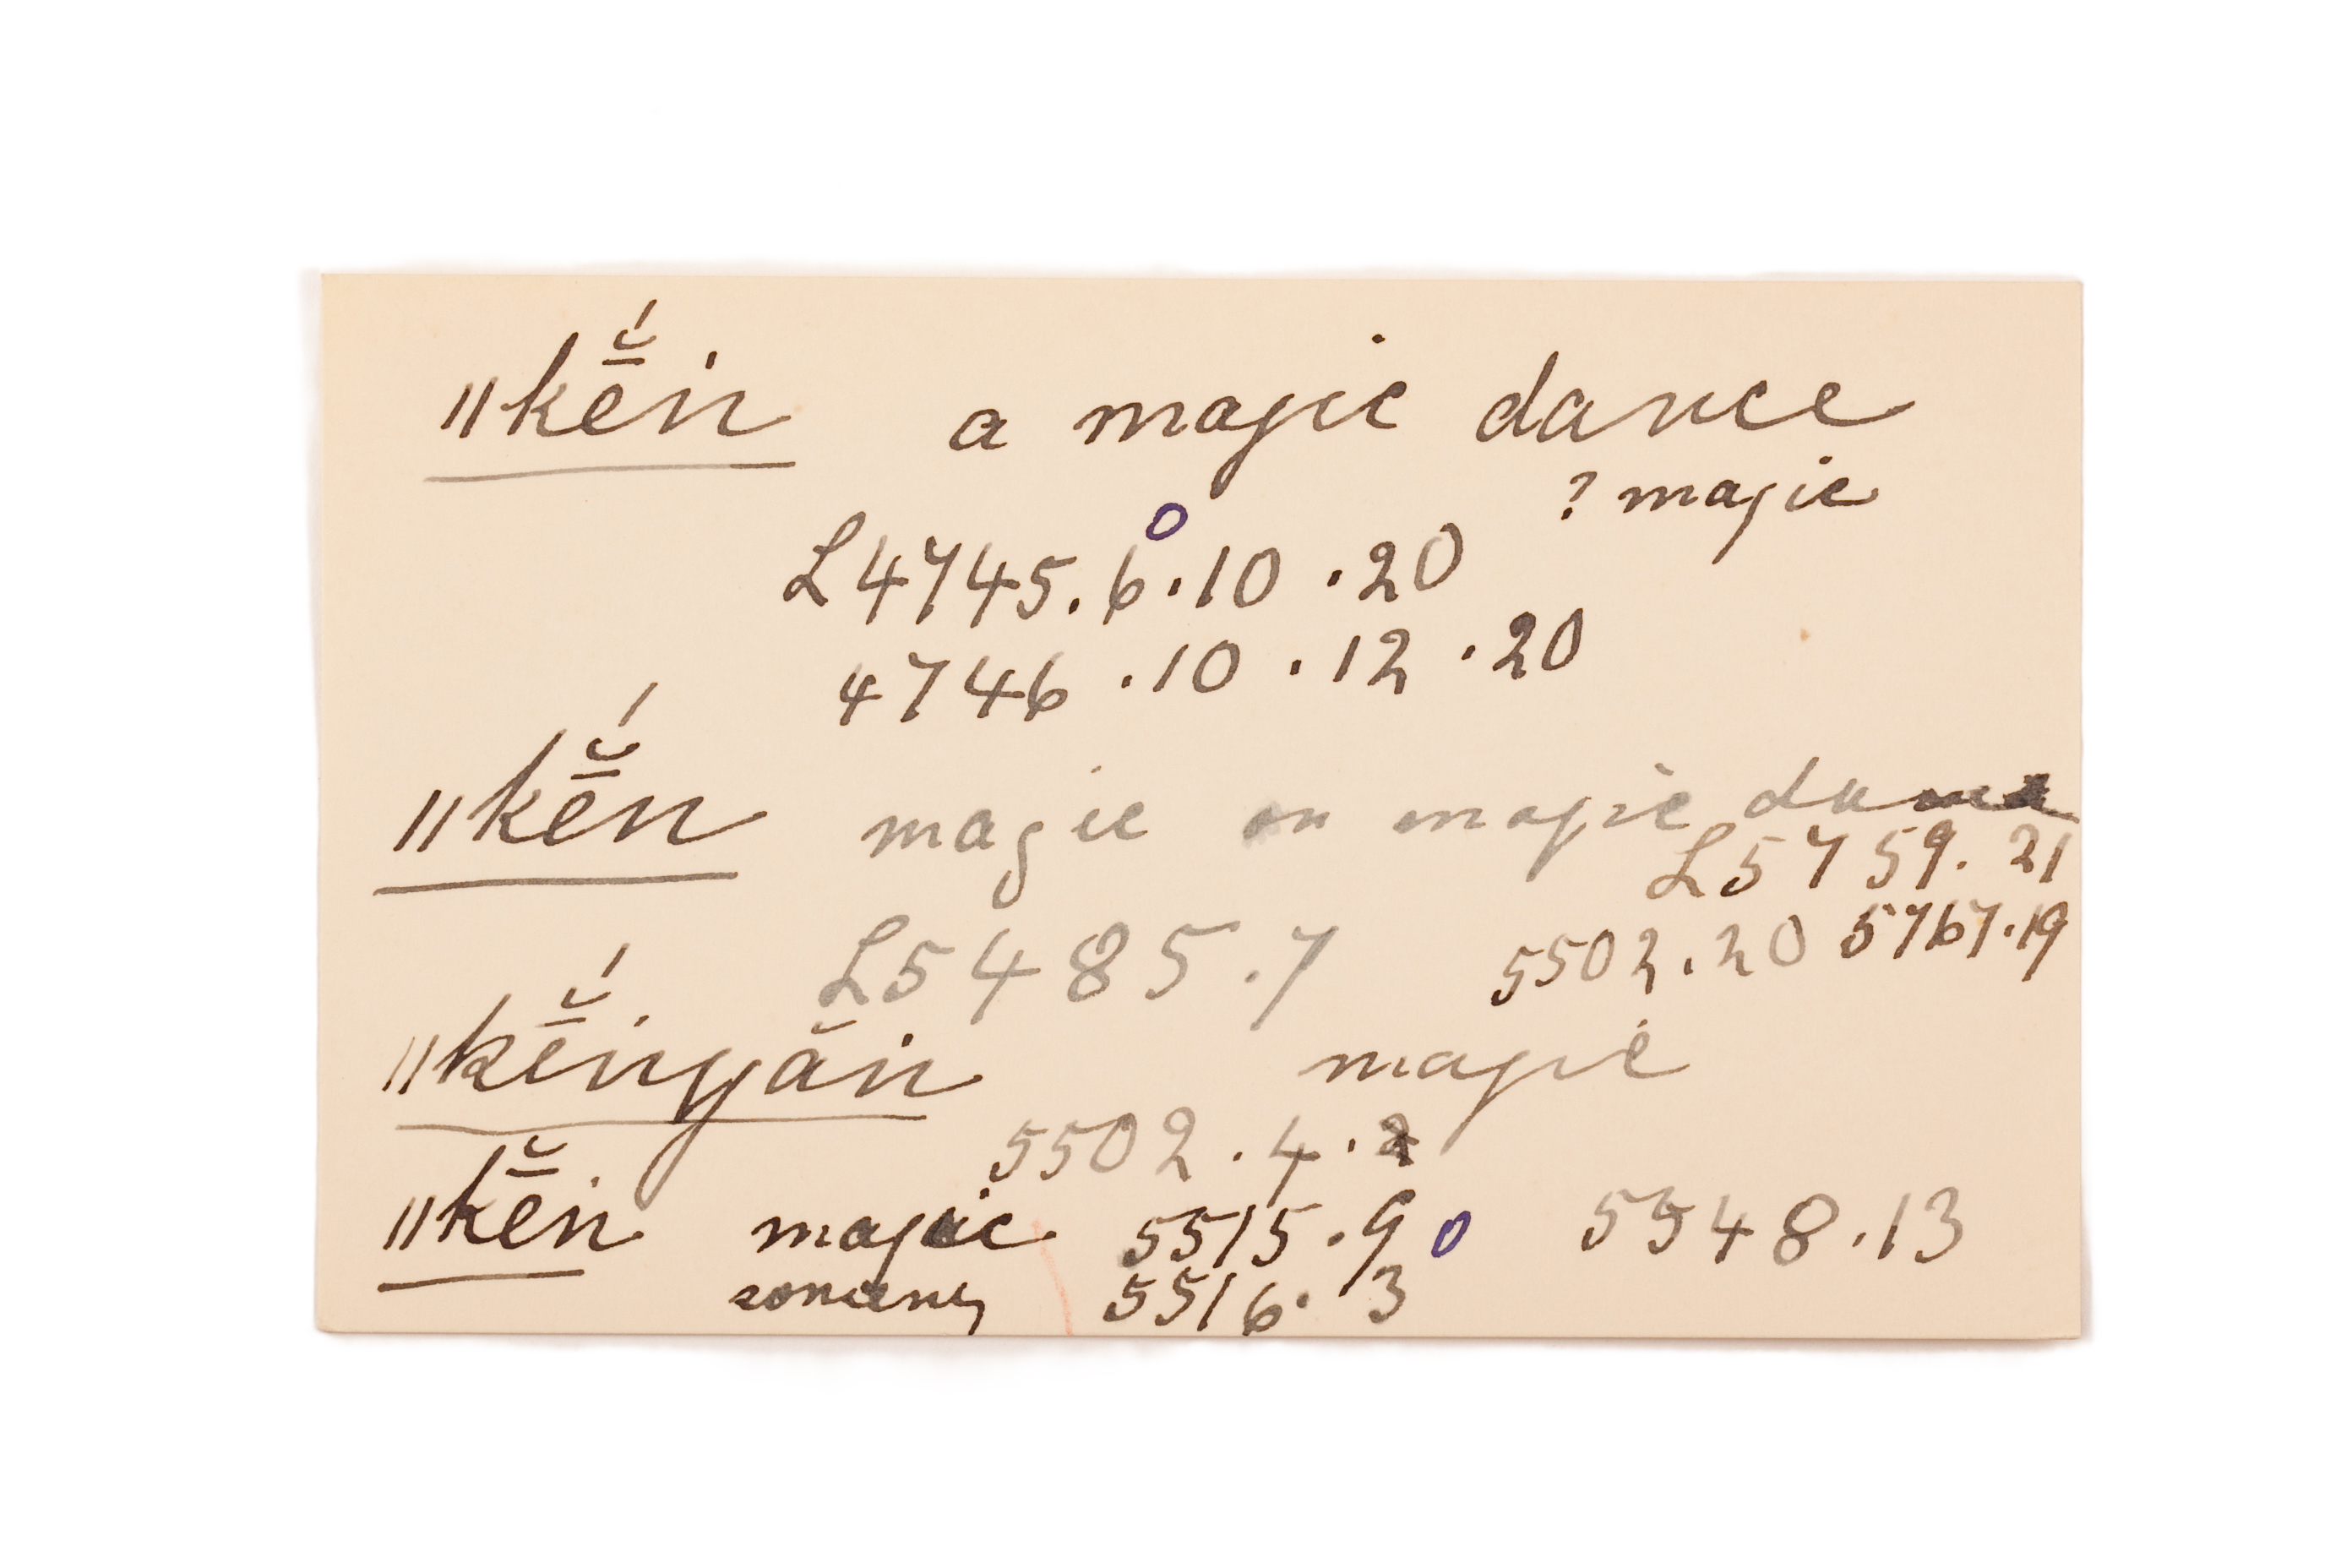 ǁkē̆́in a magic dance
? magic
L4745.6.10.20
4746.10.12.20
ǁkē̆́n magic or magic dance
L5759.21
L5485.7 5502.20 5767.19
ǁkē̆́inyăn magic
5502.4.2
ǁkē̆in magic 5515.9 5548.13
5516.3